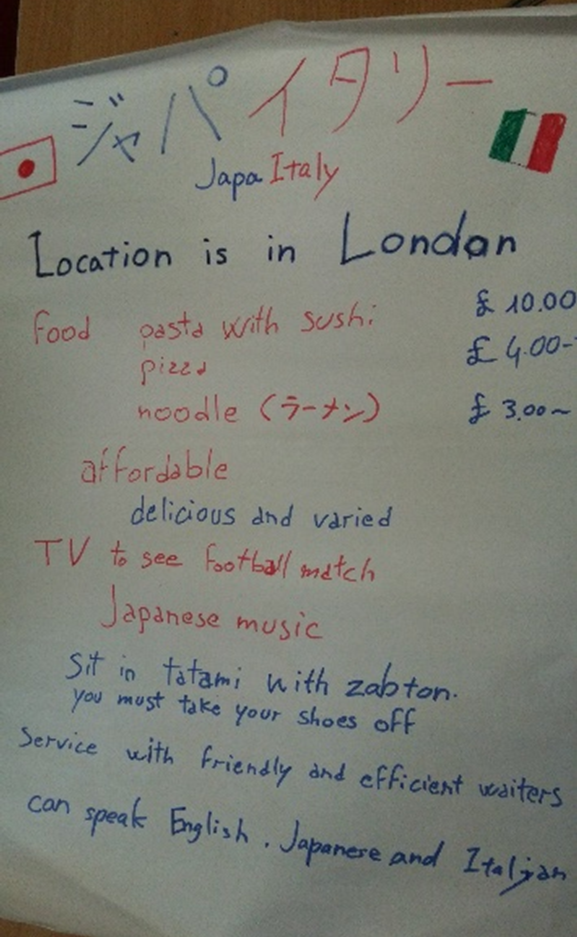 ジャパイタリー
Japa Italy
Location is in London
food pasta with sushi £ 10.00
pizza £ 4.00-
noodle (ラーメン) £ 3.00~
affordable
delicious and varied
TV to see football match
Japanese music
Sit in tatami with zabton.
you must take your shoes off
Service with friendly and efficient waiters
can speak English. Japanese and Italian